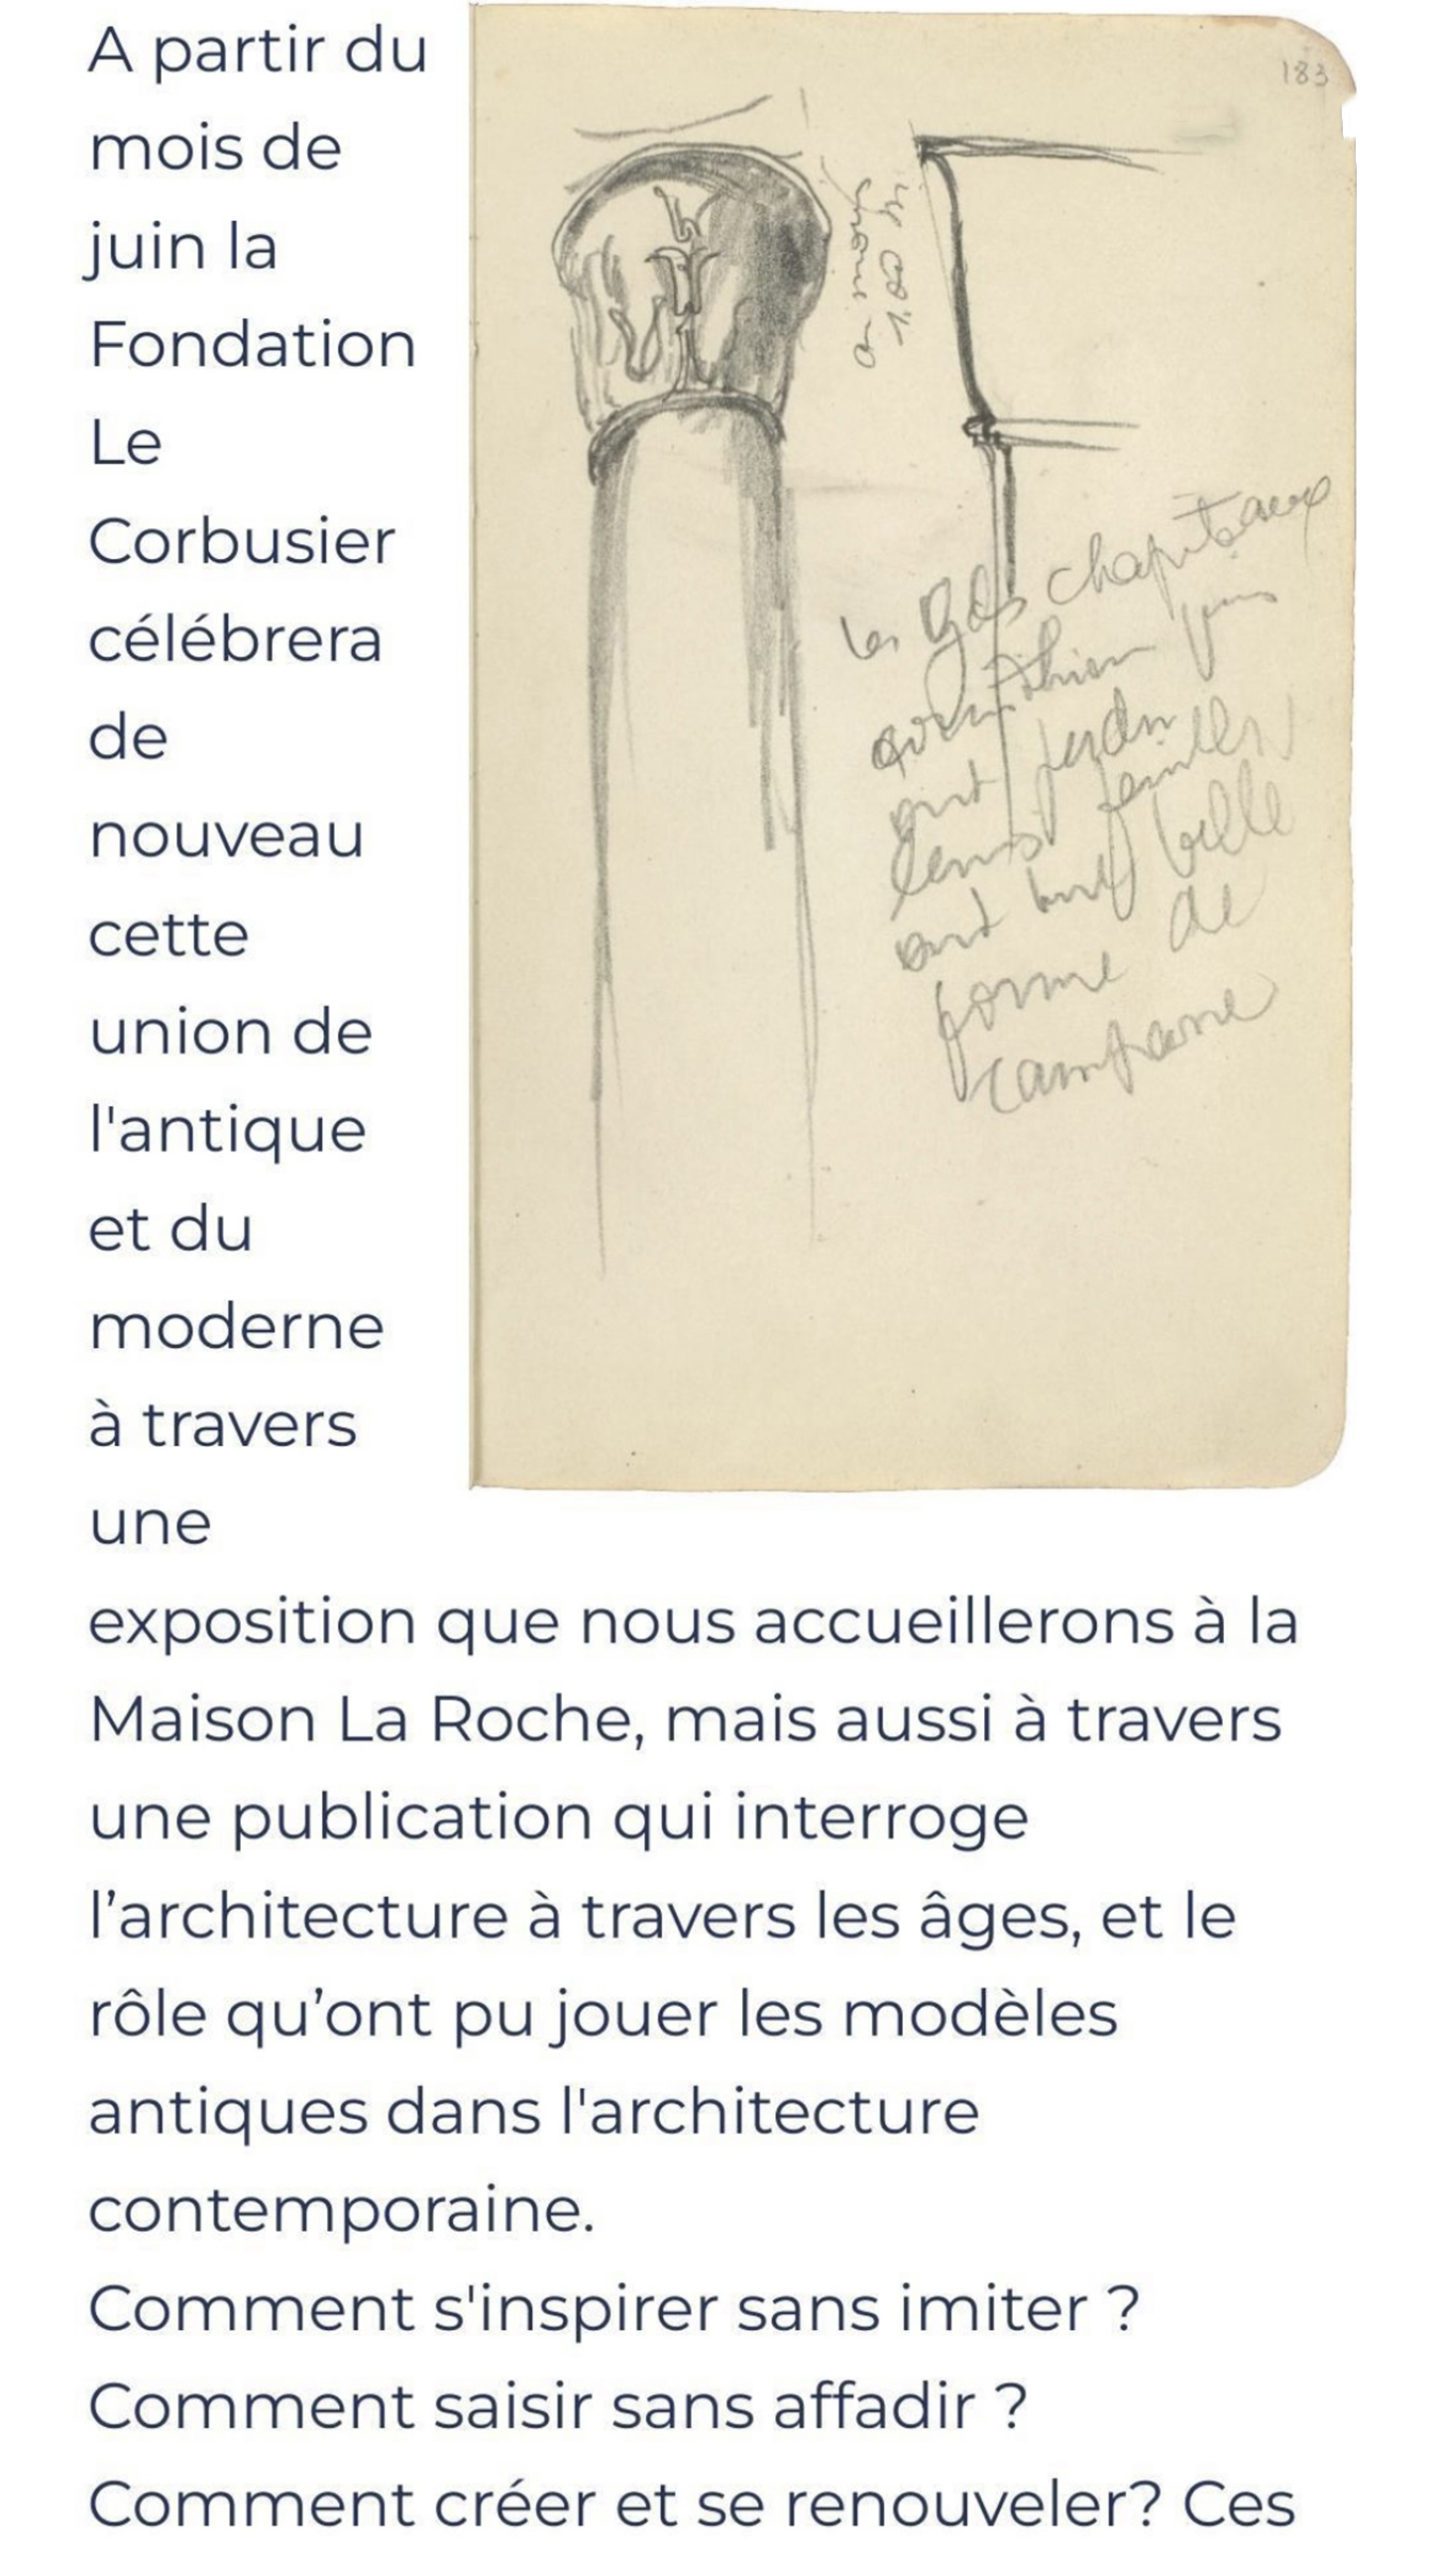 A partir du
mois de
juin la
Fondation
Le
Corbusier
célébrera
de
nouveau
cette
union de
l'antique
et du
moderne
à travers
une
exposition que nous accueillerons à la
Maison La Roche, mais aussi à travers
une publication qui interroge
l’architecture à travers les âges, et le
rôle qu’ont pu jouer les modèles
antiques dans l'architecture
contemporaine.
Comment s'inspirer sans imiter ?
Comment saisir sans affadir ?
Comment créer et se renouveler? Ces
183
les Gds chapiteaux
ont perdu
leurs feuilles
ont belle
forme de
campane